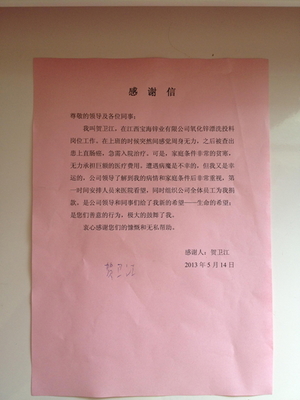 感谢信
尊敬的领导及各位同事：
我叫贺卫江，在江西宝海锌业有限公司氧化锌漂洗投料
岗位工作。在上班的时候突然间感觉周身无力，之后被查出
患上直肠癌，急需入院治疗。可是，家庭条件非常的贫寒，
无力承担巨额的医疗费用。遭遇病魔是不幸的，但我又是幸
运的，公司领导了解到我的病情和家庭条件后非常重视，第
一时间安排人员来医院看望，同时组织公司全体员工为我捐
款，是公司领导和同事们给了我新的希望——生命的希望；
是您们善意的行为，极大的鼓舞了我。
衷心感谢您们的慷慨和无私帮助。
感谢人：贺卫江
2013年5月14日
贺卫江